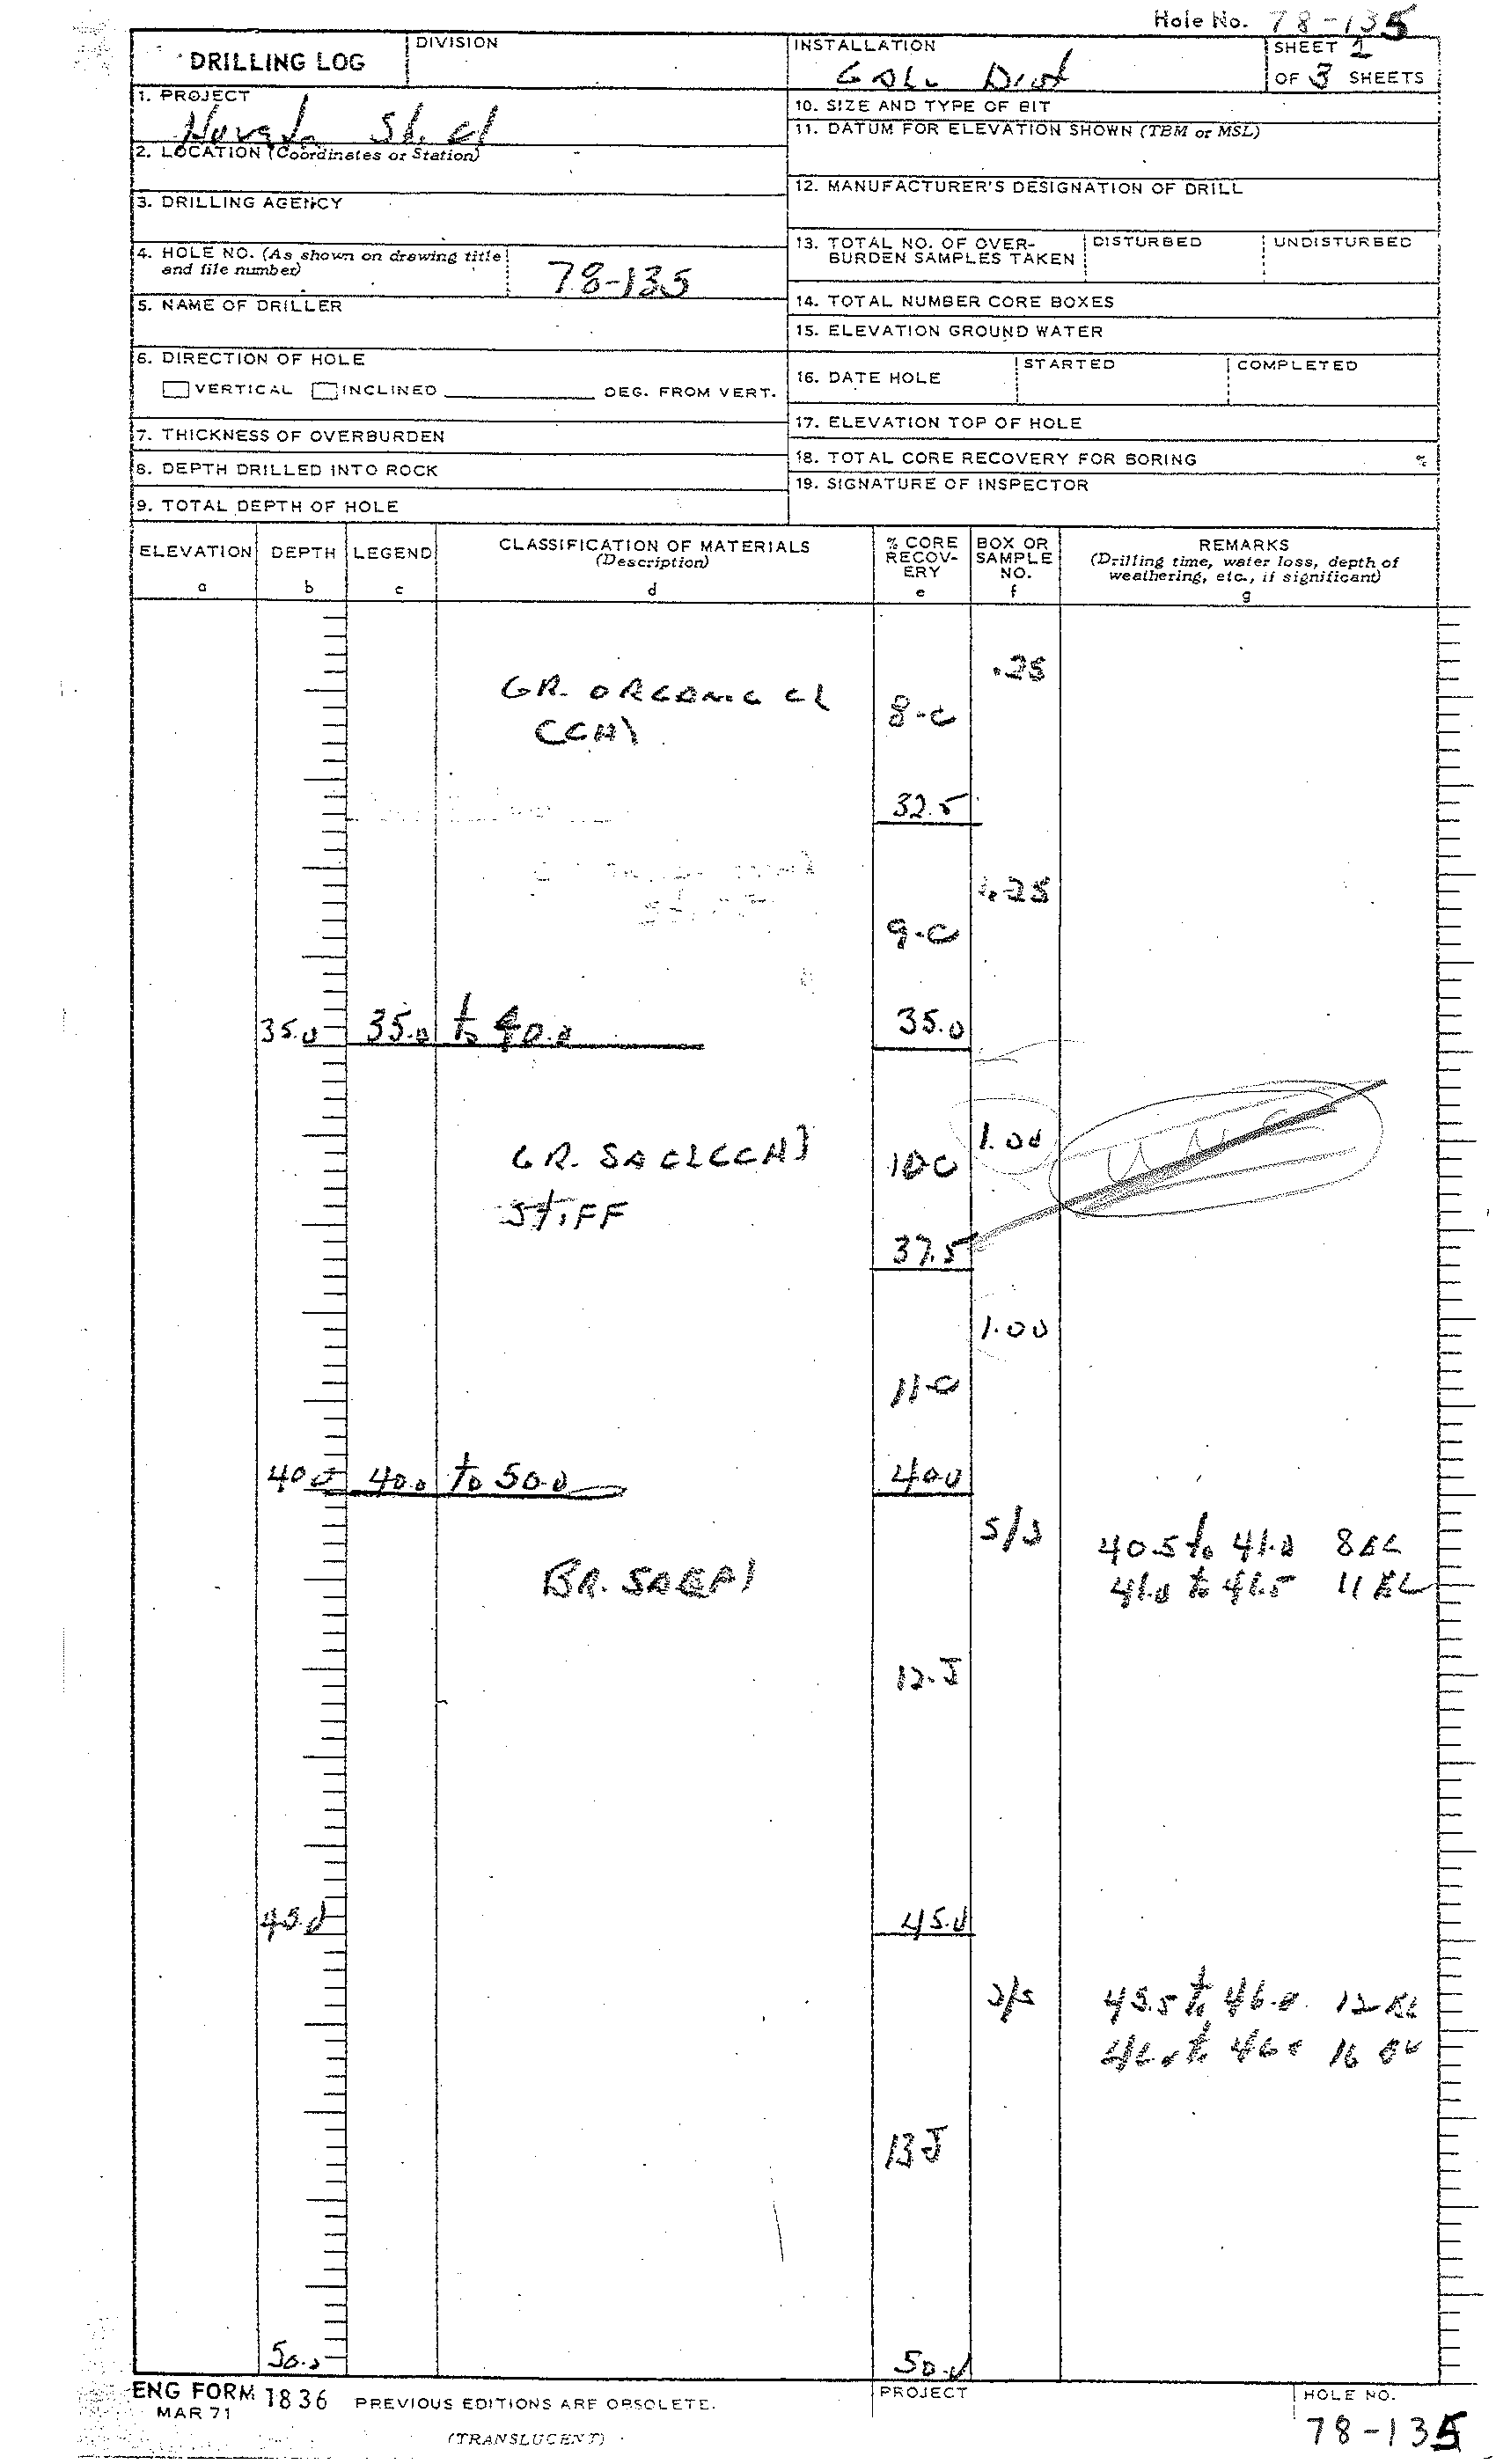 Hole No. 78-135
DRILLING LOG
DIVISION
INSTALLATION
Dist
SHEET 2
OF 3 SHEETS
1. PROJECT
2. LOCATION (Coordinates or Station)
3. DRILLING AGENCY
4. HOLE NO. (As shown on drawing title
and file number)
78-135
5. NAME OF DRILLER
6. DIRECTION OF HOLE
VERTICAL INCLINED DEG. FROM VERT.
7. THICKNESS OF OVERBURDEN
8. DEPTH DRILLED INTO ROCK
9. TOTAL DEPTH OF HOLE
10. SIZE AND TYPE OF BIT
11. DATUM FOR ELEVATION SHOWN (TBM or MSL)
12. MANUFACTURER'S DESIGNATION OF DRILL
13. TOTAL NO. OF OVER-
BURDEN SAMPLES TAKEN
DISTURBED
UNDISTURBED
14. TOTAL NUMBER CORE BOXES
15. ELEVATION GROUND WATER
16. DATE HOLE
STARTED
COMPLETED
17. ELEVATION TOP OF HOLE
18. TOTAL CORE RECOVERY FOR BORING %
19. SIGNATURE OF INSPECTOR
ELEVATION
a
DEPTH
b
LEGEND
c
CLASSIFICATION OF MATERIALS
(Description)
d
% CORE
RECOV-
ERY
e
BOX OR
SAMPLE
NO.
f
REMARKS
(Drilling time, water loss, depth of
weathering, etc., if significant)
g
.25
GR. ORGANIC CL
(CH)
8-C
32.5
.25
9-C
35.0 35.0 to 40.0 35.0
1.00
GR. SA CL(CH)
10C
STIFF
37.5
1.00
11-C
40.0 40.0 to 50.0 40.0
S/S
40.5 to 41.0 8 BL
BR. SA(SP)
41.0 to 41.5 11 BL
12-J
45.0 45.0
S/S
45.5 to 46.0 12 BL
13J
50.0 50.0
ENG FORM 1836
MAR 71
PREVIOUS EDITIONS ARE OBSOLETE.
(TRANSLUCENT)
PROJECT
HOLE NO.
78-135